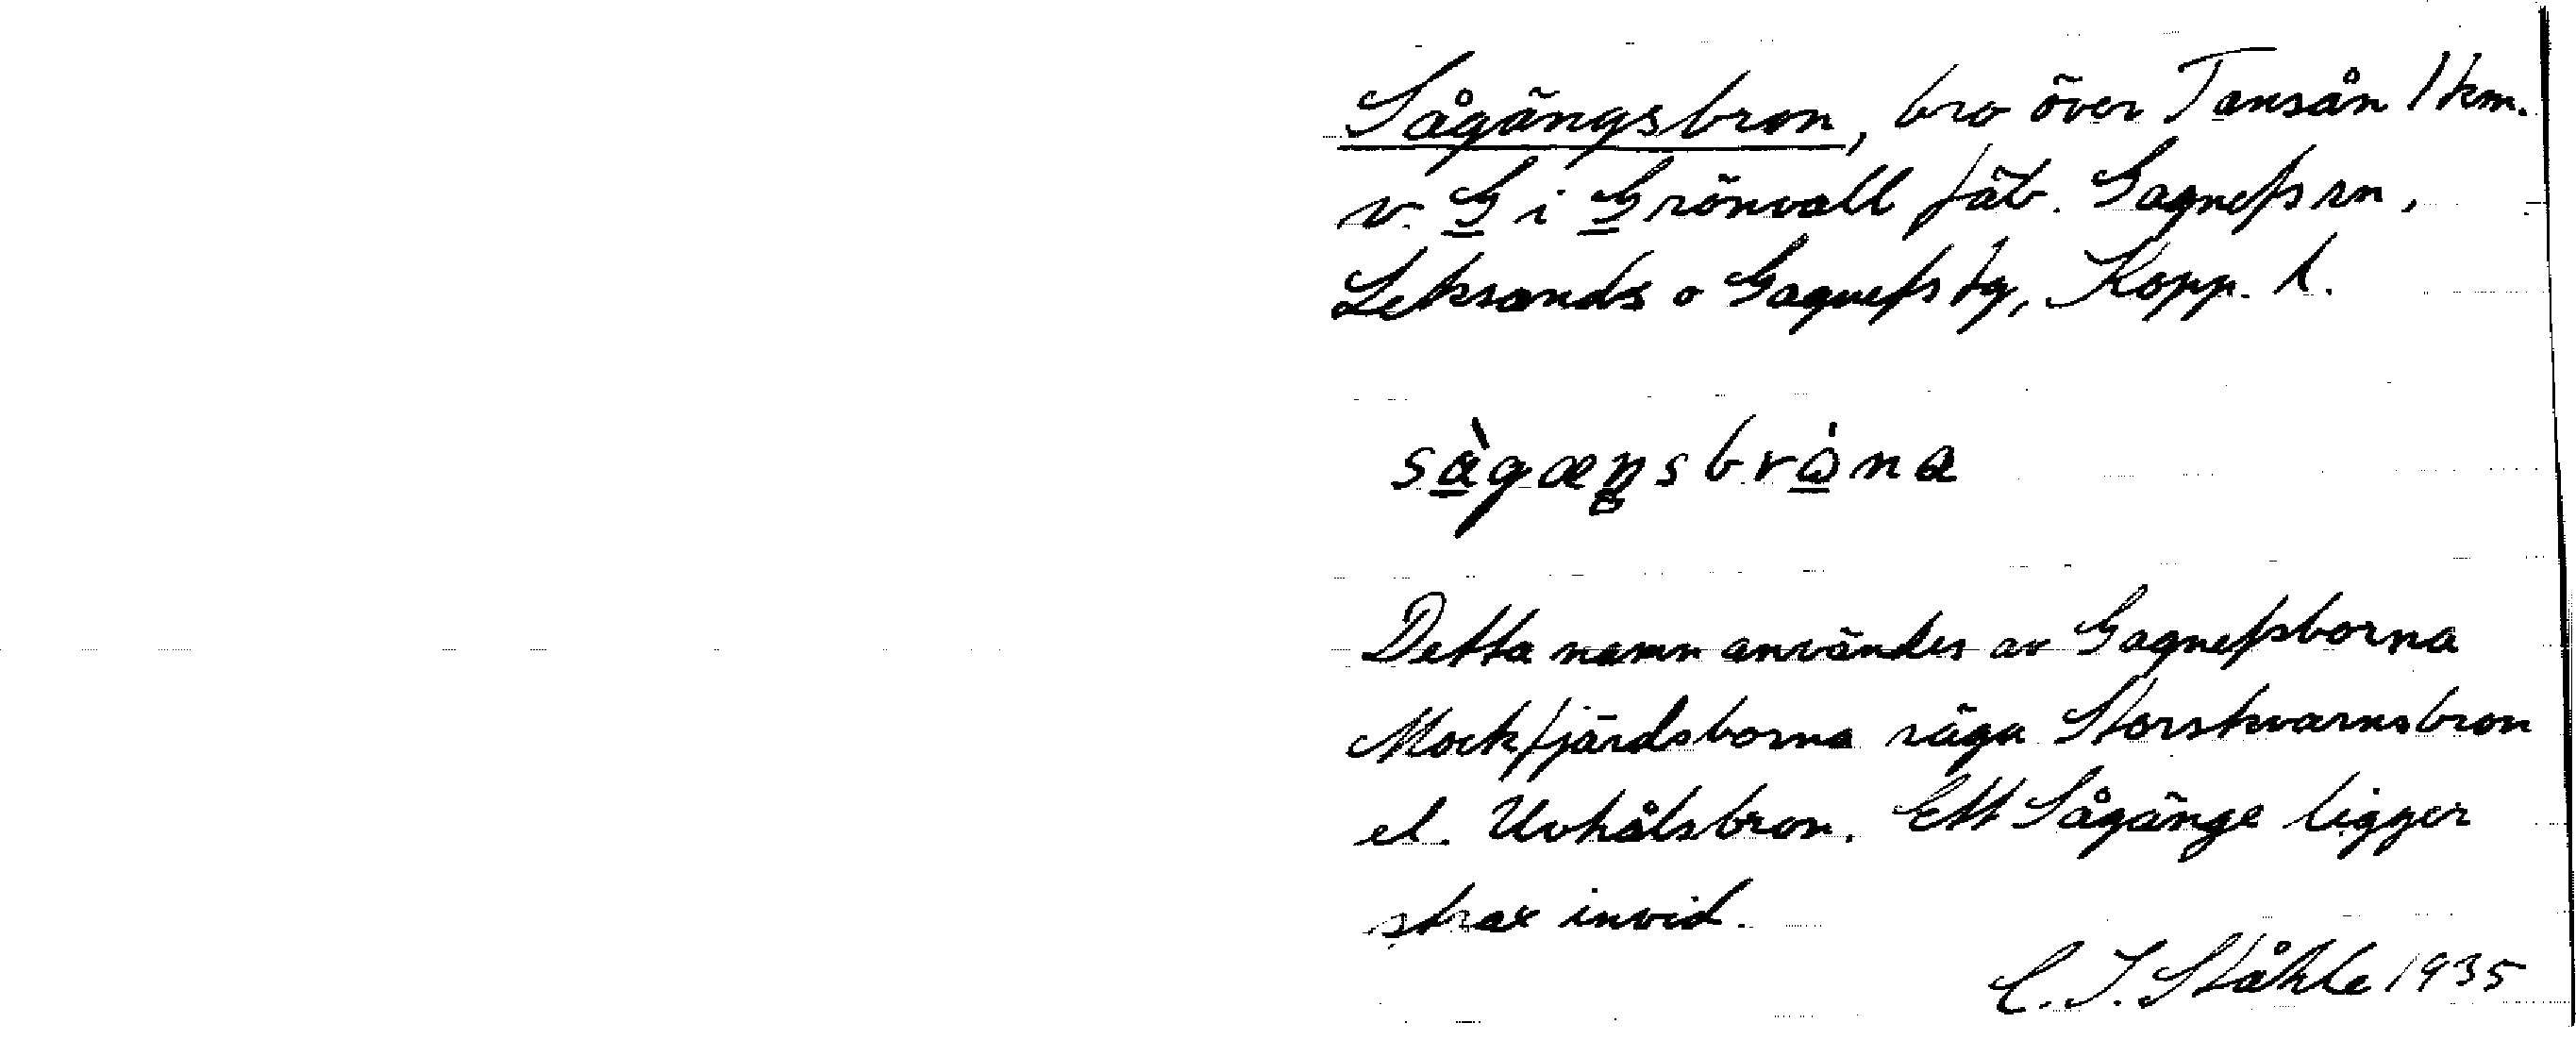 Sågängsbron, bro över Tansån 1 km.
v. G i Grönvall fäb. Gagnefs sn,
Leksands o Gagnefs tg, Kopp. l.
sàgæŋsbrona
Detta namn användes av Gagnefsborna
Mockfjärdsborna säga Storskvarnsbron
el. Uvhålsbron. Ett Sågänge ligger
strax invid.
C. I. Ståhle 1935